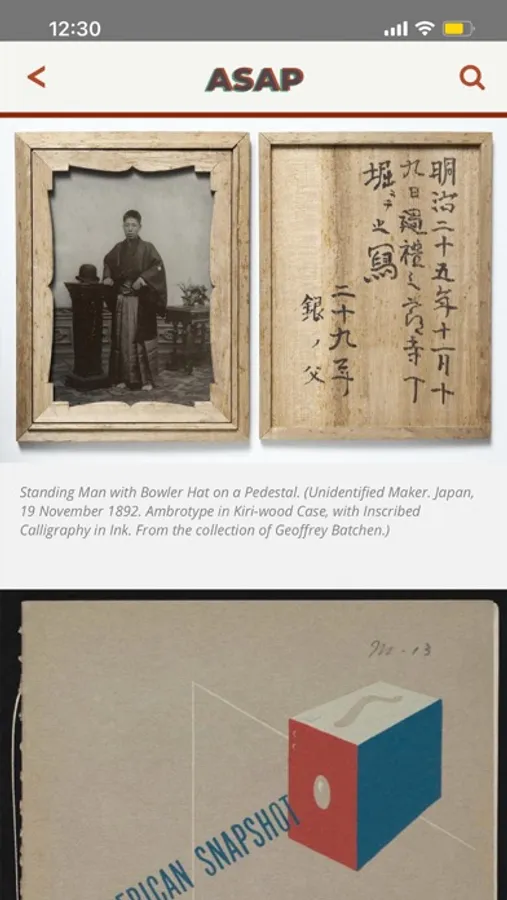 12:30
ASAP
明治二十五年十一月十
九日
堀
之寫
二十九年
銀ノ父
Standing Man with Bowler Hat on a Pedestal. (Unidentified Maker. Japan,
19 November 1892. Ambrotype in Kiri-wood Case, with Inscribed
Calligraphy in Ink. From the collection of Geoffrey Batchen.)
M-13
ERICAN SNAPSHOT